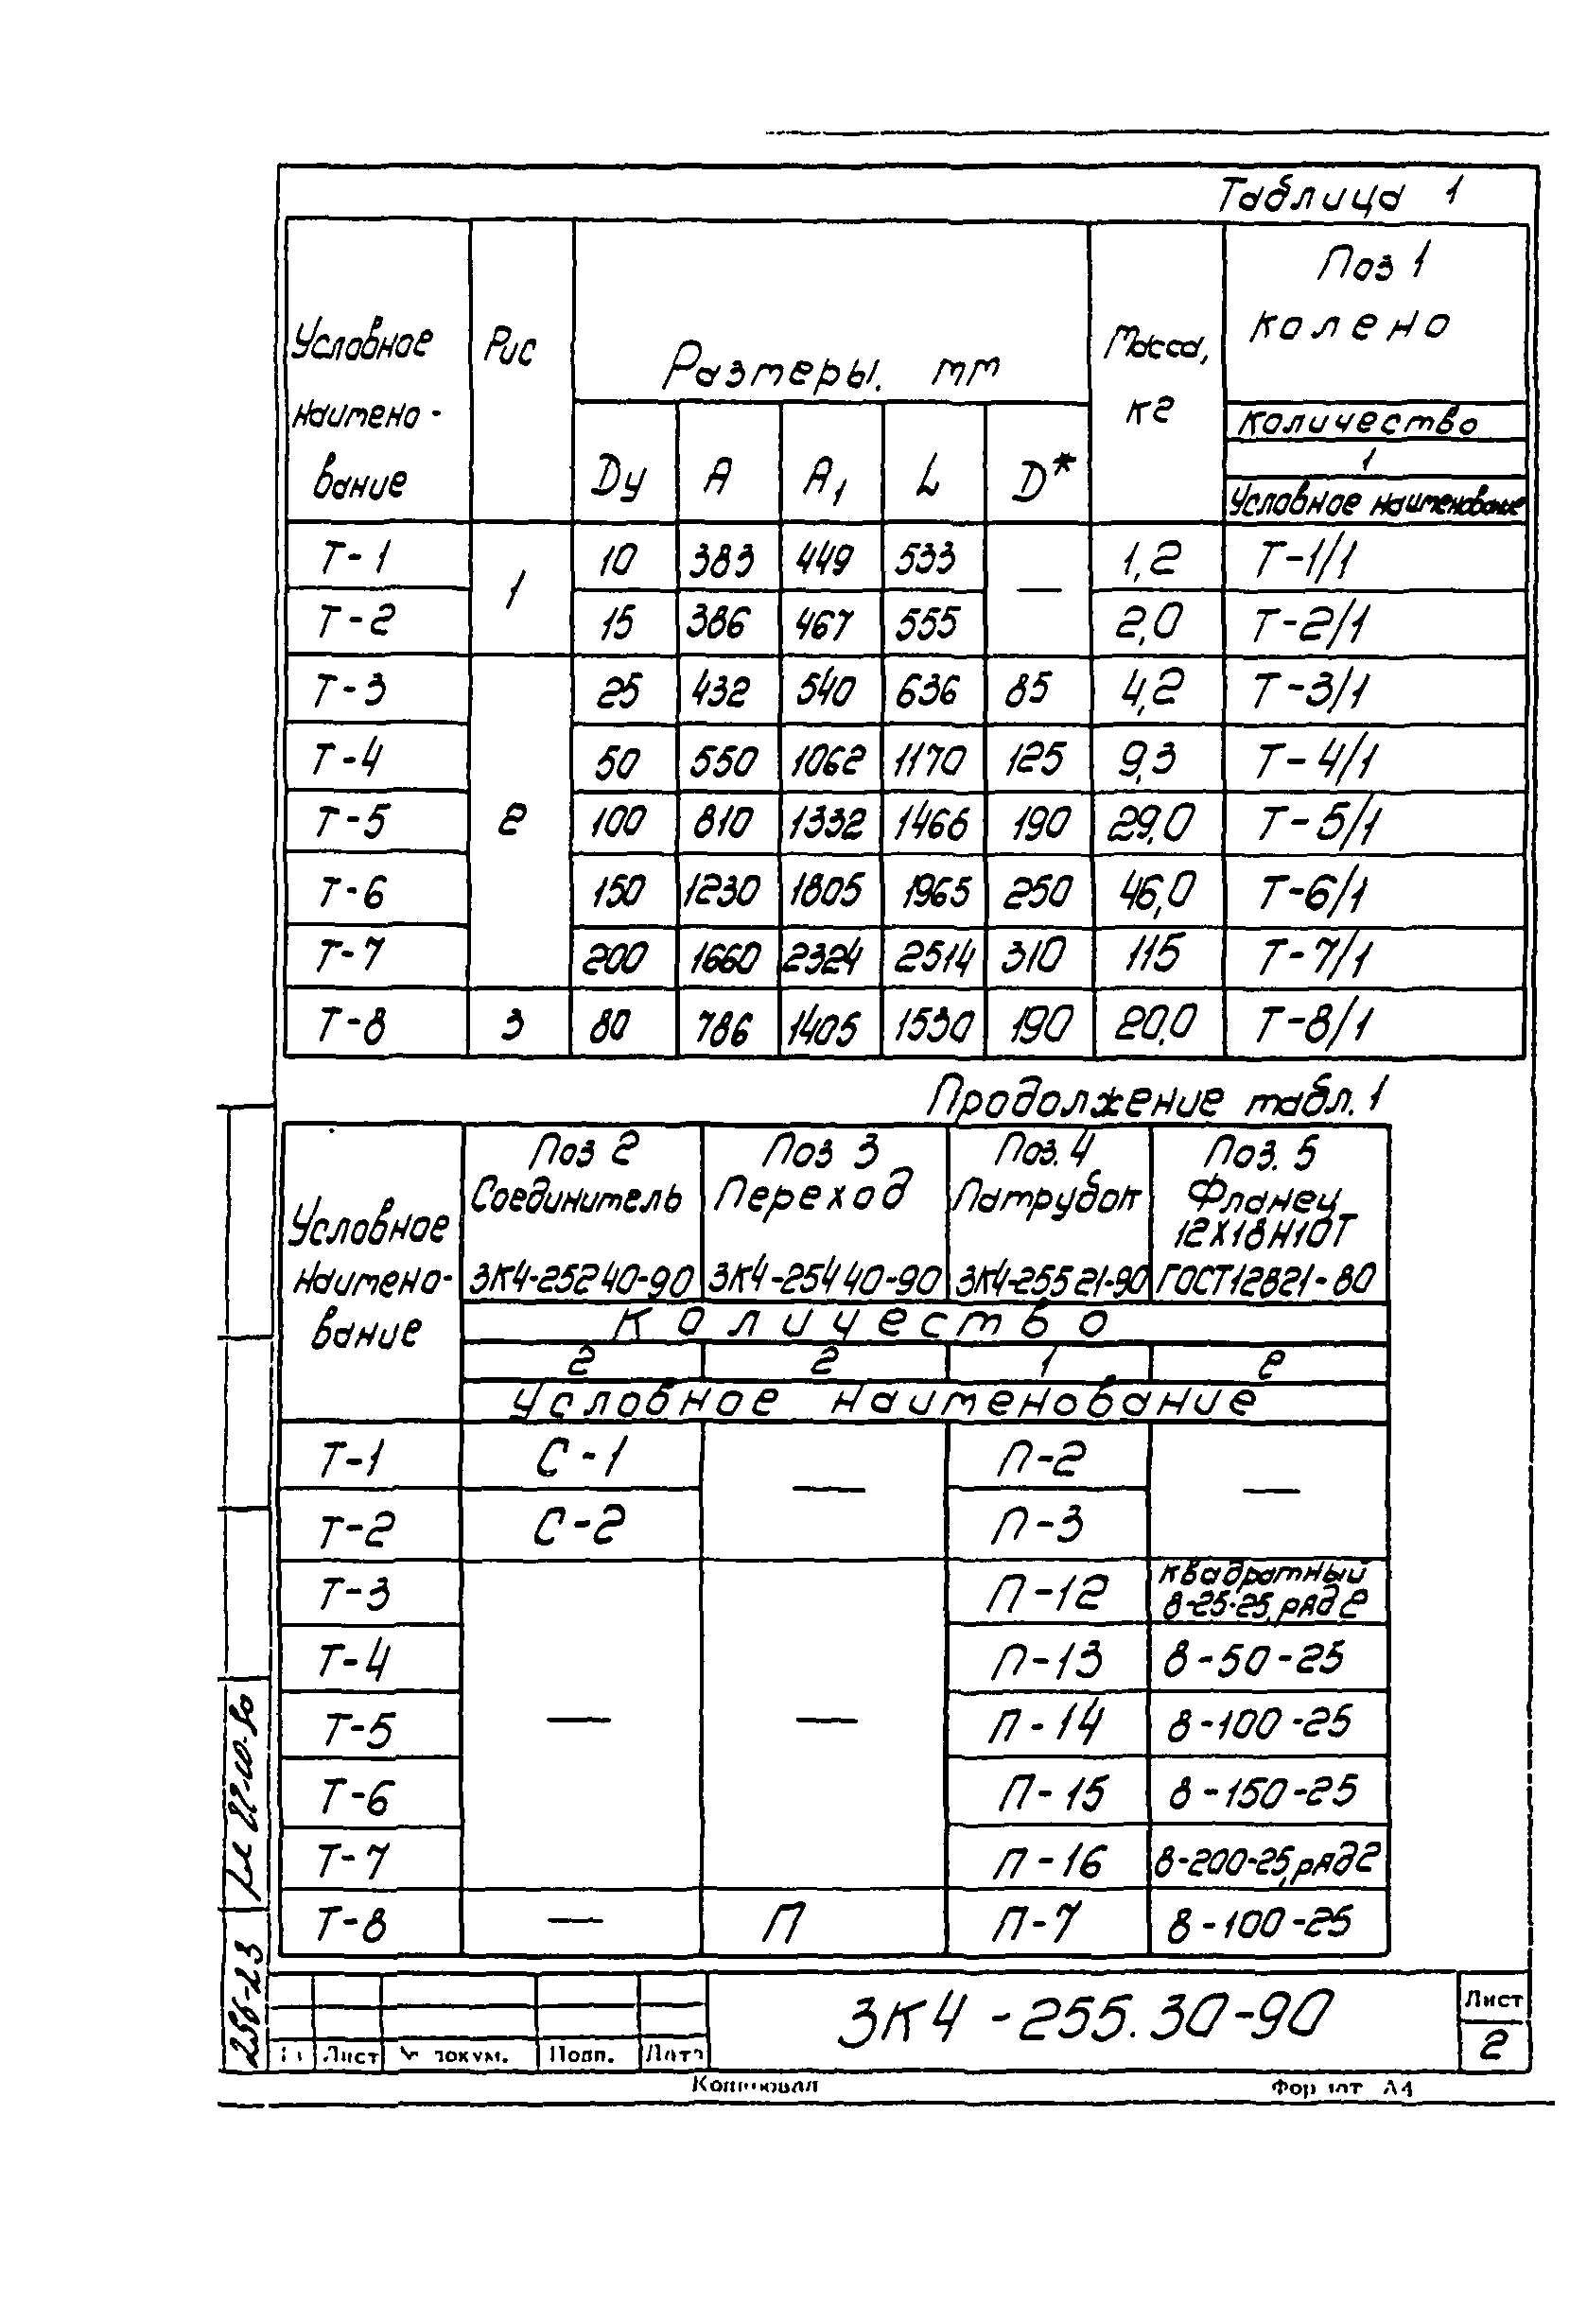 Таблица 1
Условное наимено-вание | Рис | Размеры. мм | Масса, кг | Поз 1 колено
Dу | A | A1 | L | D* | количество
1
Условное наименование
Т-1 | 1 | 10 | 383 | 449 | 533 | — | 1,2 | Т-1/1
Т-2 | 15 | 386 | 467 | 555 | 2,0 | Т-2/1
Т-3 | 2 | 25 | 432 | 540 | 636 | 85 | 4,2 | Т-3/1
Т-4 | 50 | 550 | 1062 | 1170 | 125 | 9,3 | Т-4/1
Т-5 | 100 | 810 | 1332 | 1466 | 190 | 29,0 | Т-5/1
Т-6 | 150 | 1230 | 1805 | 1965 | 250 | 46,0 | Т-6/1
Т-7 | 200 | 1660 | 2324 | 2514 | 310 | 115 | Т-7/1
Т-8 | 3 | 80 | 786 | 1405 | 1530 | 190 | 20,0 | Т-8/1
Продолжение табл. 1
Условное наимено-вание | Поз 2 Соединитель ЗК4-252 40-90 | Поз 3 Переход ЗК4-254 40-90 | Поз. 4 Патрубок ЗК4-255 21-90 | Поз. 5 Фланец 12Х18Н10Т ГОСТ12821-80
Количество
2 | 2 | 1 | 2
Условное наименование
Т-1 | С-1 | — | П-2 | —
Т-2 | С-2 | П-3
Т-3 | — | — | П-12 | квадратный 8-25-25, ряд 2
Т-4 | П-13 | 8-50-25
Т-5 | П-14 | 8-100-25
Т-6 | П-15 | 8-150-25
Т-7 | П-16 | 8-200-25, ряд 2
Т-8 | — | П | П-7 | 8-100-25
256-23
ЗК4-255.30-90
Лист
2
Лист | докум. | Подп. | Дата
Копировал
Формат А4